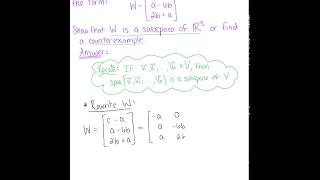 the form: W = [c - a
a - 6b
2b + a]
Show that W is a subspace of ℝ³ or find
a counterexample
Answer:
Recall: If v₁, v₂, ... vₚ ∈ V, then
Span{v₁, v₂, ... vₚ} is subspace of V
* Rewrite W:
W = [c - a
a - 6b
2b + a] = [-a 0
a -6b
a 2b